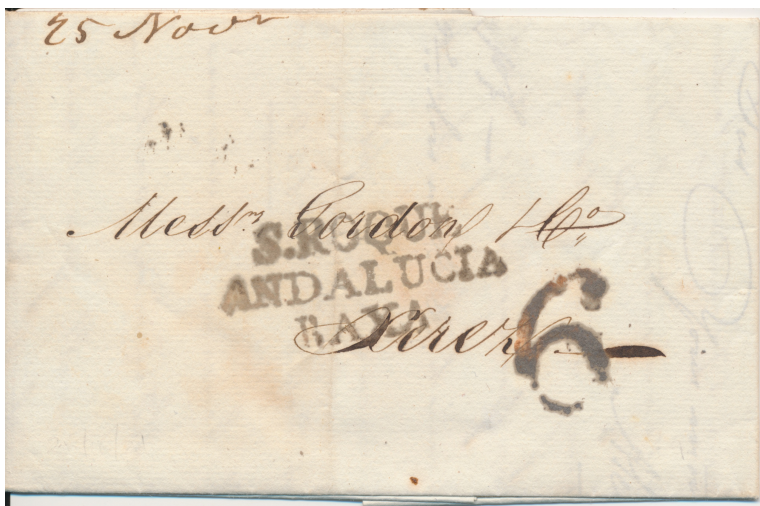 25 Novr
Messrs Gordon & Co
S.ROQUE
ANDALUCIA
BAXA
Xerez
6